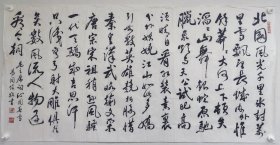 北国风光千里冰封万
里雪飘望长城内外惟
馀莽莽大河上下顿失
滔滔山舞银蛇原驰
腊象欲与天公试比高
须晴日看红装素裹分外
妖娆江山如此多娇
引无数英雄竞折腰惜
秦皇汉武略输文采
唐宗宋祖稍逊风骚
一代天骄成吉思汗
只识弯弓射大雕俱往
矣数风流人物还
看今朝